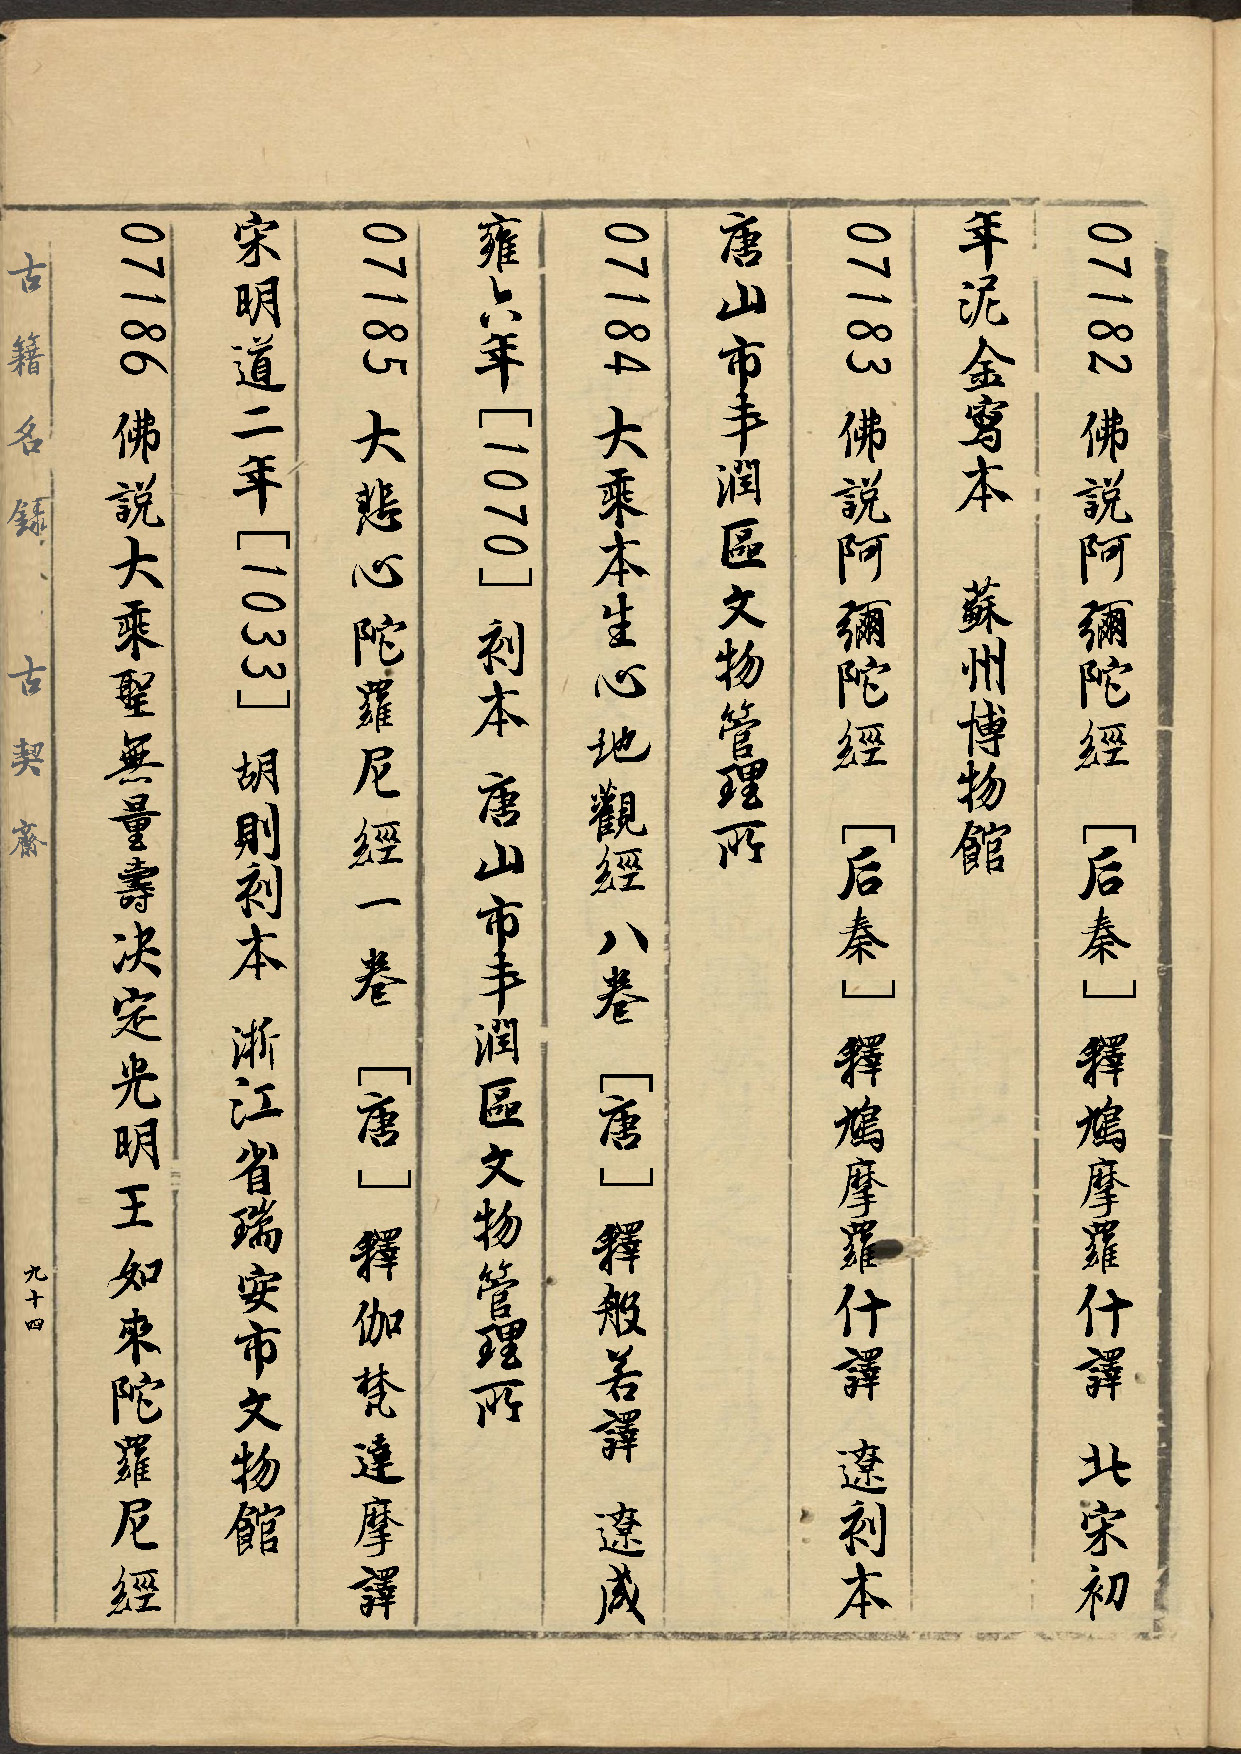 07182 佛説阿彌陀經 [后秦] 釋鳩摩羅什譯 北宋初
年泥金寫本 蘇州博物館
07183 佛説阿彌陀經 [后秦] 釋鳩摩羅什譯 遼刻本
唐山市丰潤區文物管理所
07184 大乘本生心地觀經八卷 [唐] 釋般若譯 遼咸
雍六年[1070]刻本 唐山市丰潤區文物管理所
07185 大悲心陀羅尼經一卷 [唐] 釋伽梵達摩譯
宋明道二年[1033]胡則刻本 浙江省瑞安市文物館
07186 佛説大乘聖無量壽决定光明王如來陀羅尼經
古籍名錄 古契齋
九十四